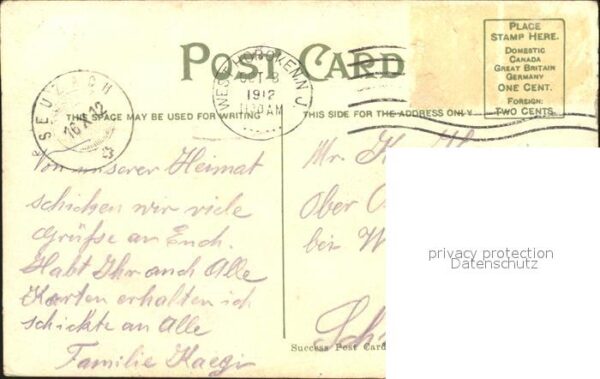 POST CARD
PLACE
STAMP HERE.
DOMESTIC
CANADA
GREAT BRITAIN
GERMANY
ONE CENT.
FOREIGN:
TWO CENTS.
WEST HOBOKEN, N.J.
OCT 8
1912
11 30 AM
SEUZACH
16.X.12
THIS SPACE MAY BE USED FOR WRITING
THIS SIDE FOR THE ADDRESS ONLY
Von unserer Heimat
schicken wir viele
Grüfse an Euch.
Habt Ihr auch Alle
Karten erhalten ich
schickte an Alle
Familie Kaegi
Mr.
Ober
bei W
Sch
privacy protection
Datenschutz
Success Post Card